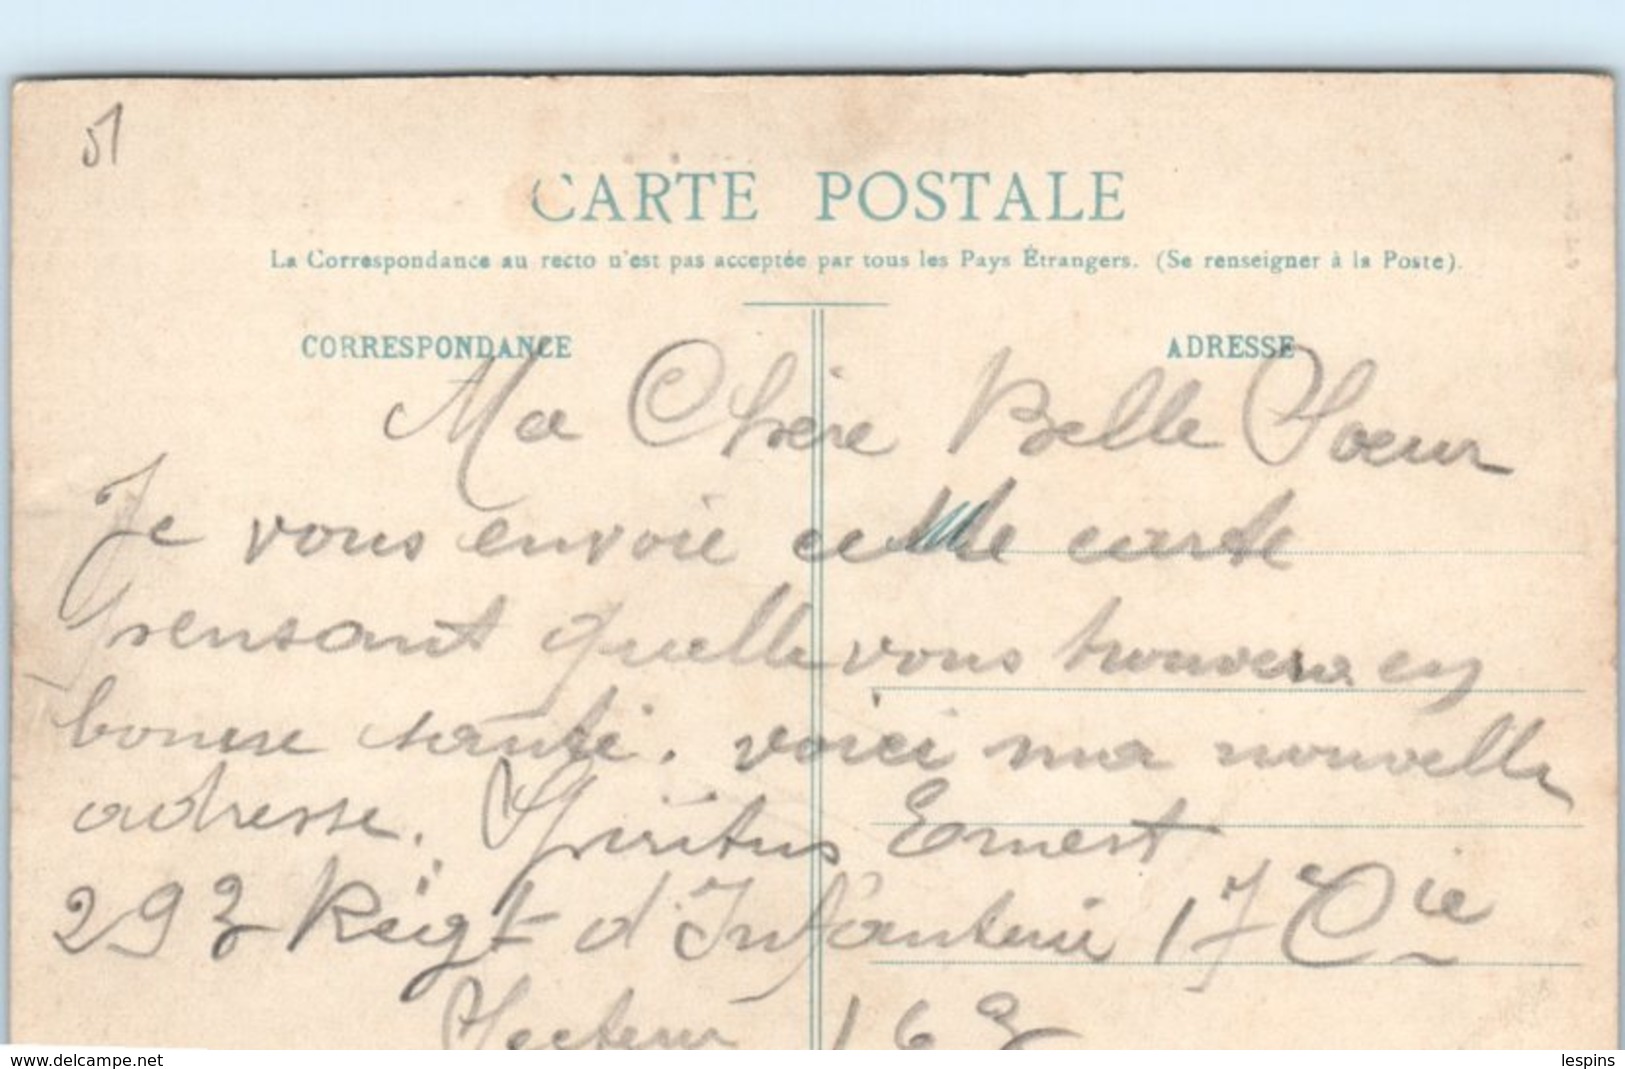 51
CARTE POSTALE
La Correspondance au recto n'est pas acceptée par tous les Pays Étrangers. (Se renseigner à la Poste).
CORRESPONDANCE
ADRESSE
Ma Chère Belle Soeur
Je vous envoie cette carte
pensant quelle vous trouvera en
bonne santé. voici ma nouvelle
adresse. Spiritus Ernest
293 Régt d'Infanterie 17 Cie
Secteur 163
www.delcampe.net
lespins